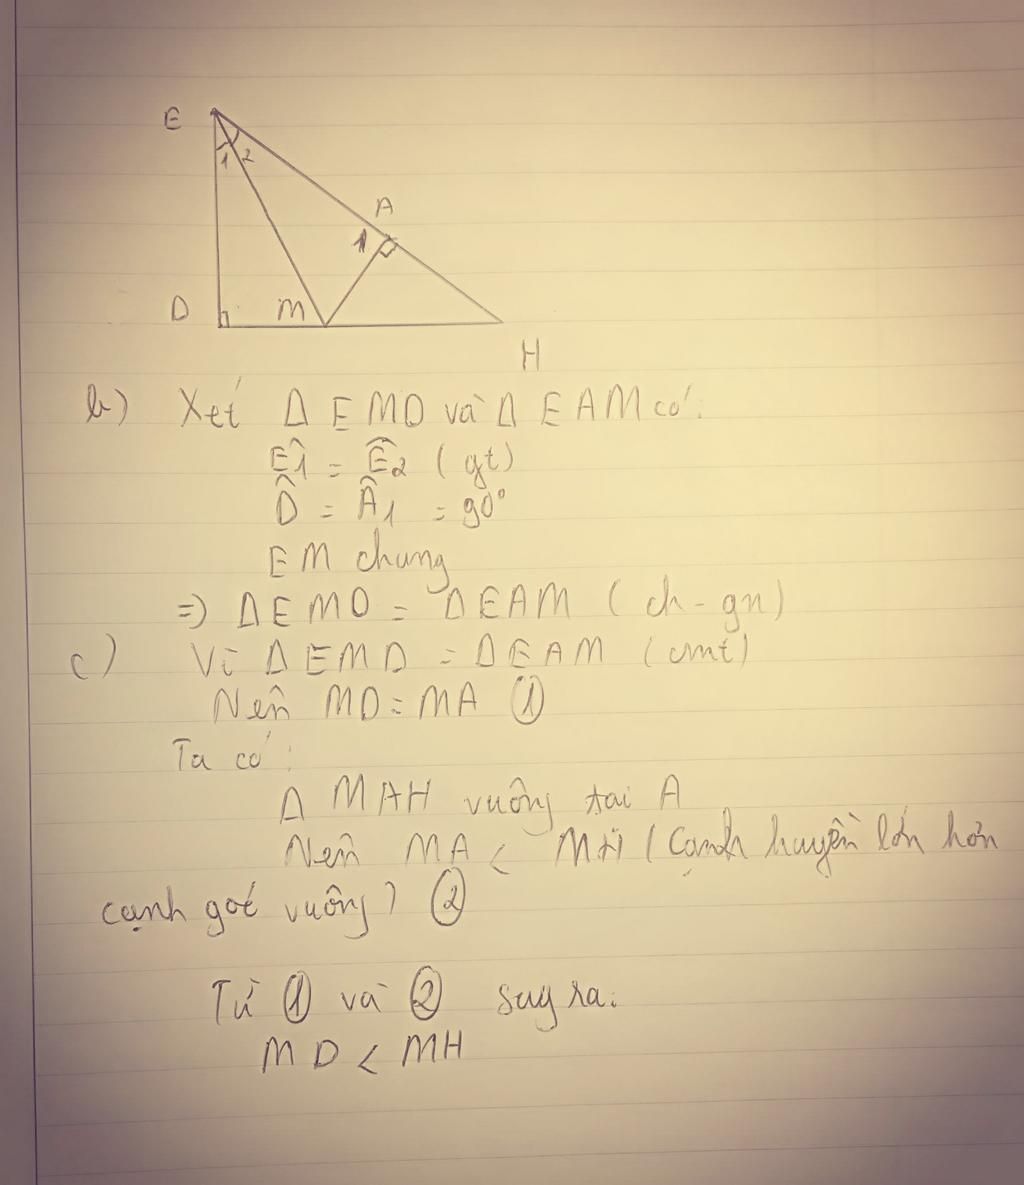 E
1 2
A
1
D M
H
b) Xét Δ EMD và Δ EAM có:
Ê1 = Ê2 (gt)
D̂ = Â1 = 90°
EM chung
=) ΔEMD = ΔEAM (ch - gn)
c) Vì ΔEMD = ΔEAM (cmt)
Nên MD = MA ①
Ta có:
Δ MAH vuông tai A
Nên MA < MH (Cạnh huyền lớn hơn
cạnh goć vuông) ②
Từ ① và ② suy ra:
MD < MH